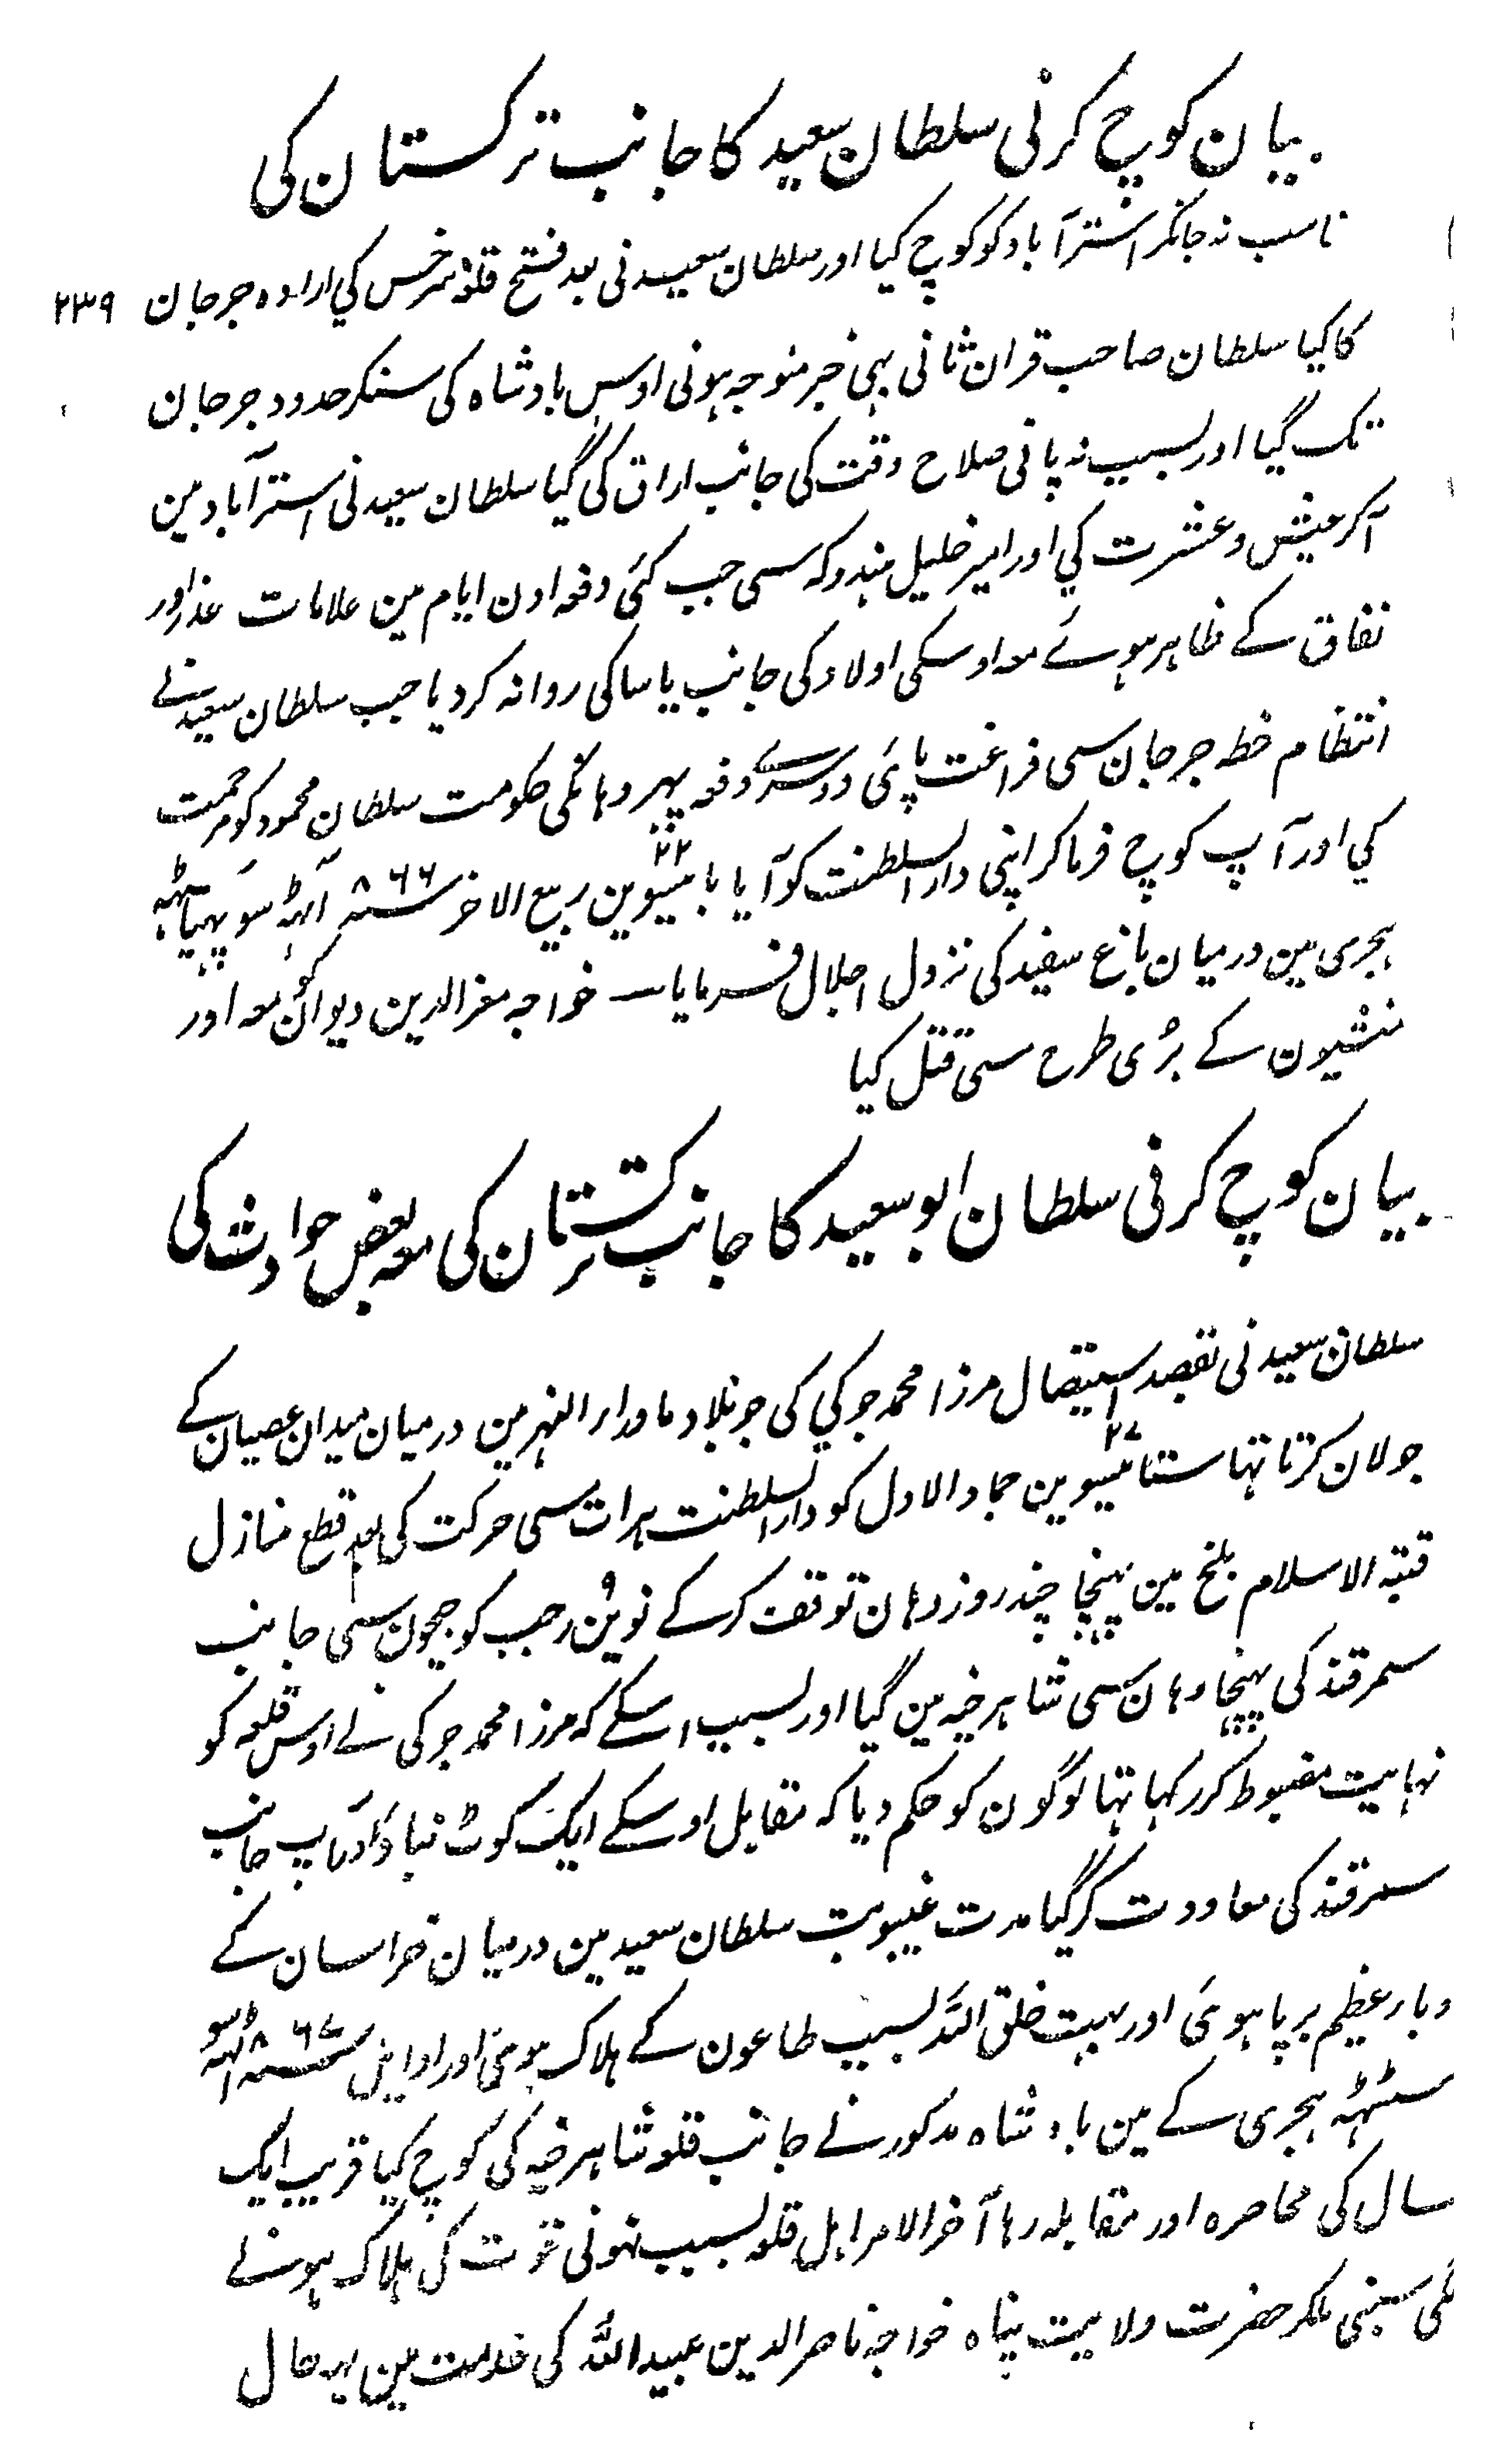 بیان کوچ کرنی سلطان سعید کا جانب ترکستان کی
ناسب نہ جانکر استرآباد کو کوچ کیا اور سلطان سعید نی بعد فتح قلعہ سرخس کی ارادہ جرجان ۲۳۹
کا کیا سلطان صاحب قران ثانی بہی خبر متوجہ ہونی اوس بادشاہ کی سنکر حدود جرجان
تک گیا اور بسبب نہ پانی صلاح وقت کی جانب اراق کی گیا سلطان سعید نی استرآباد مین
آکر عیش و عشرت کی اور امیر خلیل ہندوکہ سی جب کئی دفعہ اون ایام مین علامات غدر اور
نفاق کے ظاہر ہوئے معہ اوسکی اولاد کی جانب یاسا کی روانہ کردیا جب سلطان سعید نے
انتظام خطہ جرجان سی فراغت پائی دوسرے دفعہ پہر وہانکی حکومت سلطان محمود کو مرحمت
کی اور آپ کوچ فرماکر اپنی دارالسلطنت کو آیا بائیسوین ۲۲ ربیع الاخر ۸۶۶ سنہ آٹہہ سو چہیاسٹہہ
ہجری مین درمیان باغ سفید کی نزول اجلال فرمایا خواجہ معزالدین دیوان کو معہ اور
منشیون کے بُری طرح سی قتل کیا
بیان کوچ کرنی سلطان ابو سعید کا جانب ترکستان کی معہ بعض حوادث کی
سلطان سعید نی بقصد استیصال مرزا محمد جوکی کی جو بلاد ماوراء النہر مین درمیان میدان عصیان کے
جولان کرتا تہا ستائیسوین ۲۷ جماد الاول کو دارالسلطنت ہرات سی حرکت کی بعد قطع منازل
قبتہ الاسلام بلخ مین پہنچا چند روز وہان توقف کرکے نوین ۹ رجب کو جیحون سی جانب
سمرقند کی پہنچا وہان سی شاہرخیہ مین گیا اور بسبب اسکے کہ مرزا محمد جوکی نے اوس قلعہ کو
نہایت مضبوط کر رکہا تہا لوگون کو حکم دیا کہ مقابل اوسکے ایک کوٹ بناؤ اور آپ جانب
سمرقند کی معاودت کر گیا مدت غیبوبت سلطان سعید مین درمیان خراسان کے
وباء عظیم برپا ہوئی اور بہت خلق اللہ بسبب طاعون کے ہلاک ہوئی اور اوایل ۸۶۷ سنہ آٹہہ سو
سٹہہ ہجری کے مین بادشاہ مذکور نے جانب قلعہ شاہرخیہ کی کوچ کیا قریب ایک
سال کی محاصرہ اور مقابلہ رہا آخر الامر اہل قلعہ بسبب نہونی قوت کی ہلاک ہونے
لگی سبنی ملکر حضرت ولایت پناہ خواجہ ناصرالدین عبیداللہ کی خدمت مین یہ حال